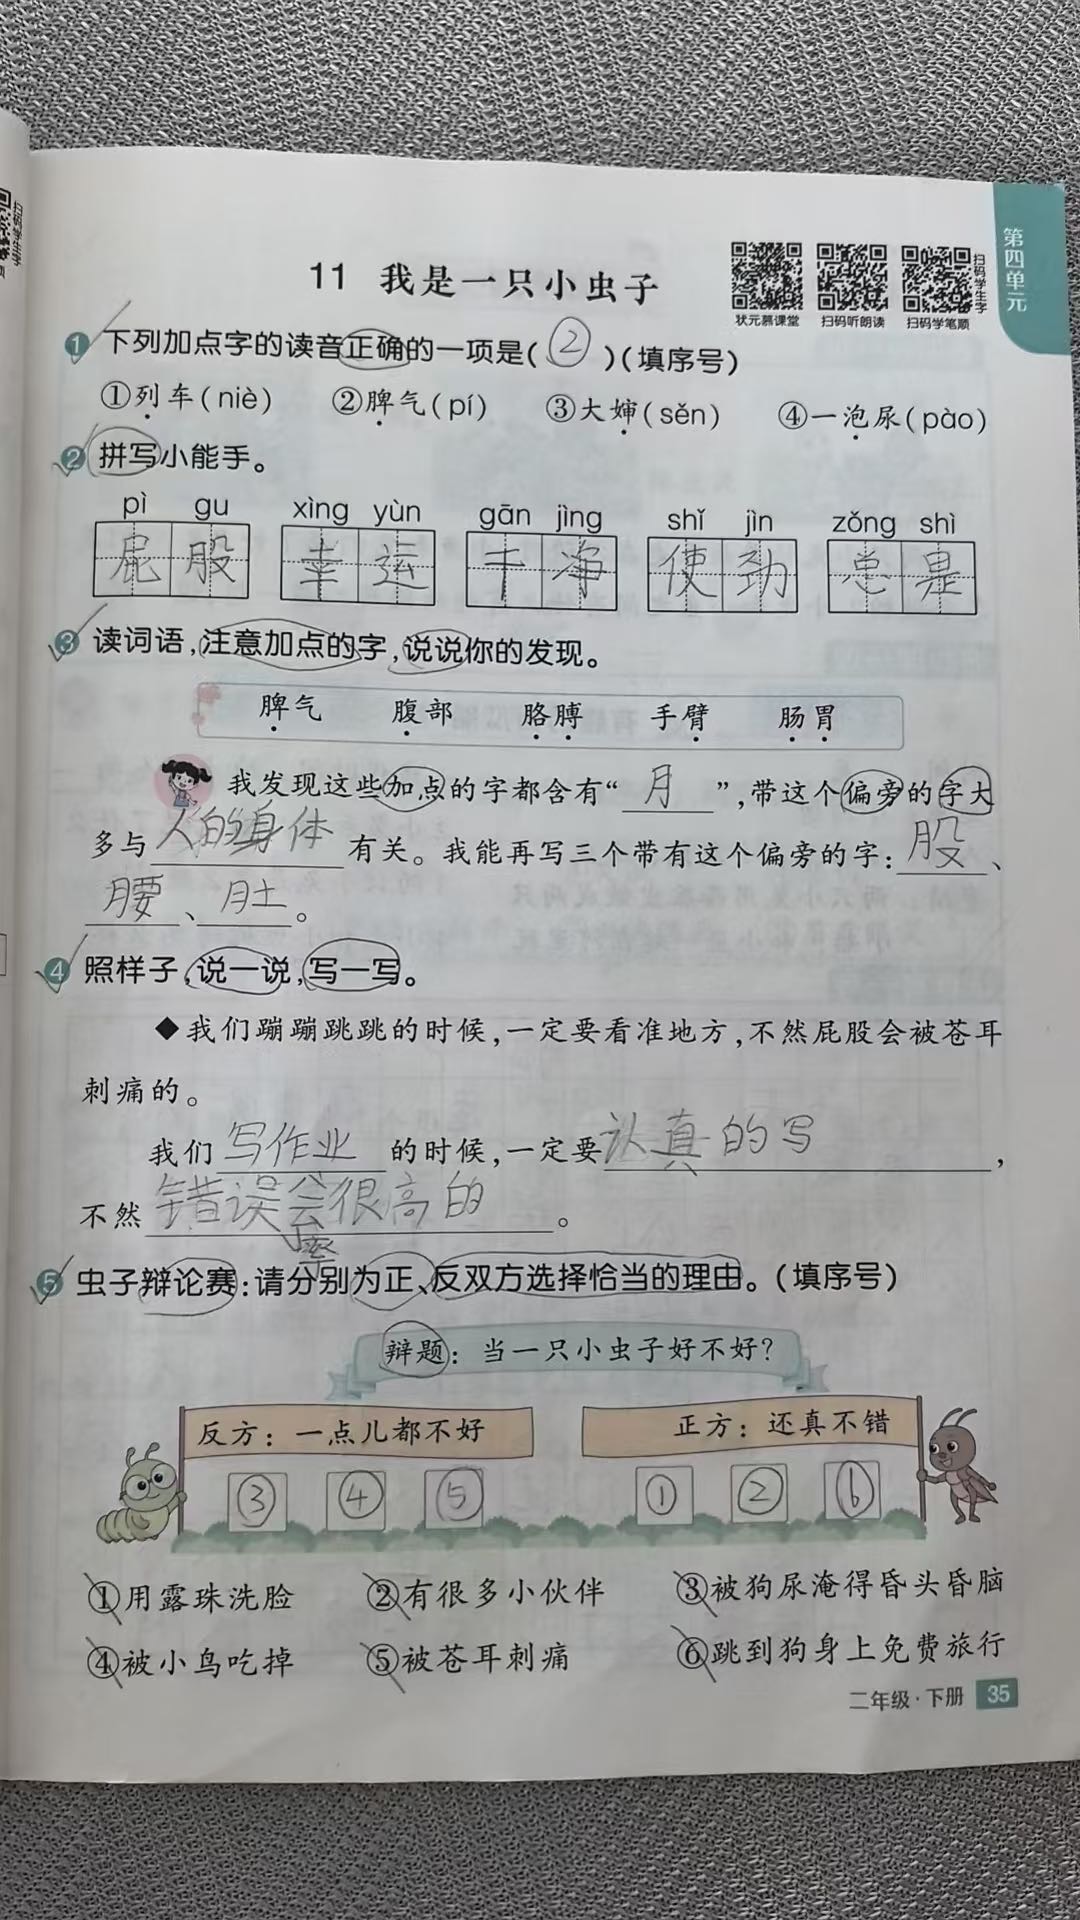 第四单元
11 我是一只小虫子
扫码学生字
状元慕课堂 扫码听朗读 扫码学笔顺
1 下列加点字的读音正确的一项是( ② )(填序号)
①列车(niè) ②脾气(pí) ③大婶(sěn) ④一泡尿(pào)
2 拼写小能手。
pì gu xìng yùn gān jìng shǐ jìn zǒng shì
屁股 幸运 干净 使劲 总是
3 读词语,注意加点的字,说说你的发现。
脾气 腹部 胳膊 手臂 肠胃
我发现这些加点的字都含有“月”,带这个偏旁的字大
多与人的身体有关。我能再写三个带有这个偏旁的字:股、
腰、肚。
4 照样子,说一说,写一写。
◆我们蹦蹦跳跳的时候,一定要看准地方,不然屁股会被苍耳
刺痛的。
我们写作业的时候,一定要认真的写,
不然错误会很高的。
率
5 虫子辩论赛:请分别为正、反双方选择恰当的理由。(填序号)
辩题:当一只小虫子好不好?
反方:一点儿都不好 正方:还真不错
③ ④ ⑤ ① ② ⑥
①用露珠洗脸 ②有很多小伙伴 ③被狗尿淹得昏头昏脑
④被小鸟吃掉 ⑤被苍耳刺痛 ⑥跳到狗身上免费旅行
二年级·下册 35